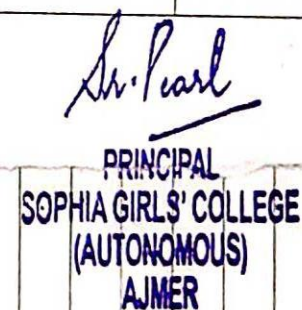 Sr. Pearl
PRINCIPAL
SOPHIA GIRLS' COLLEGE
(AUTONOMOUS)
AJMER